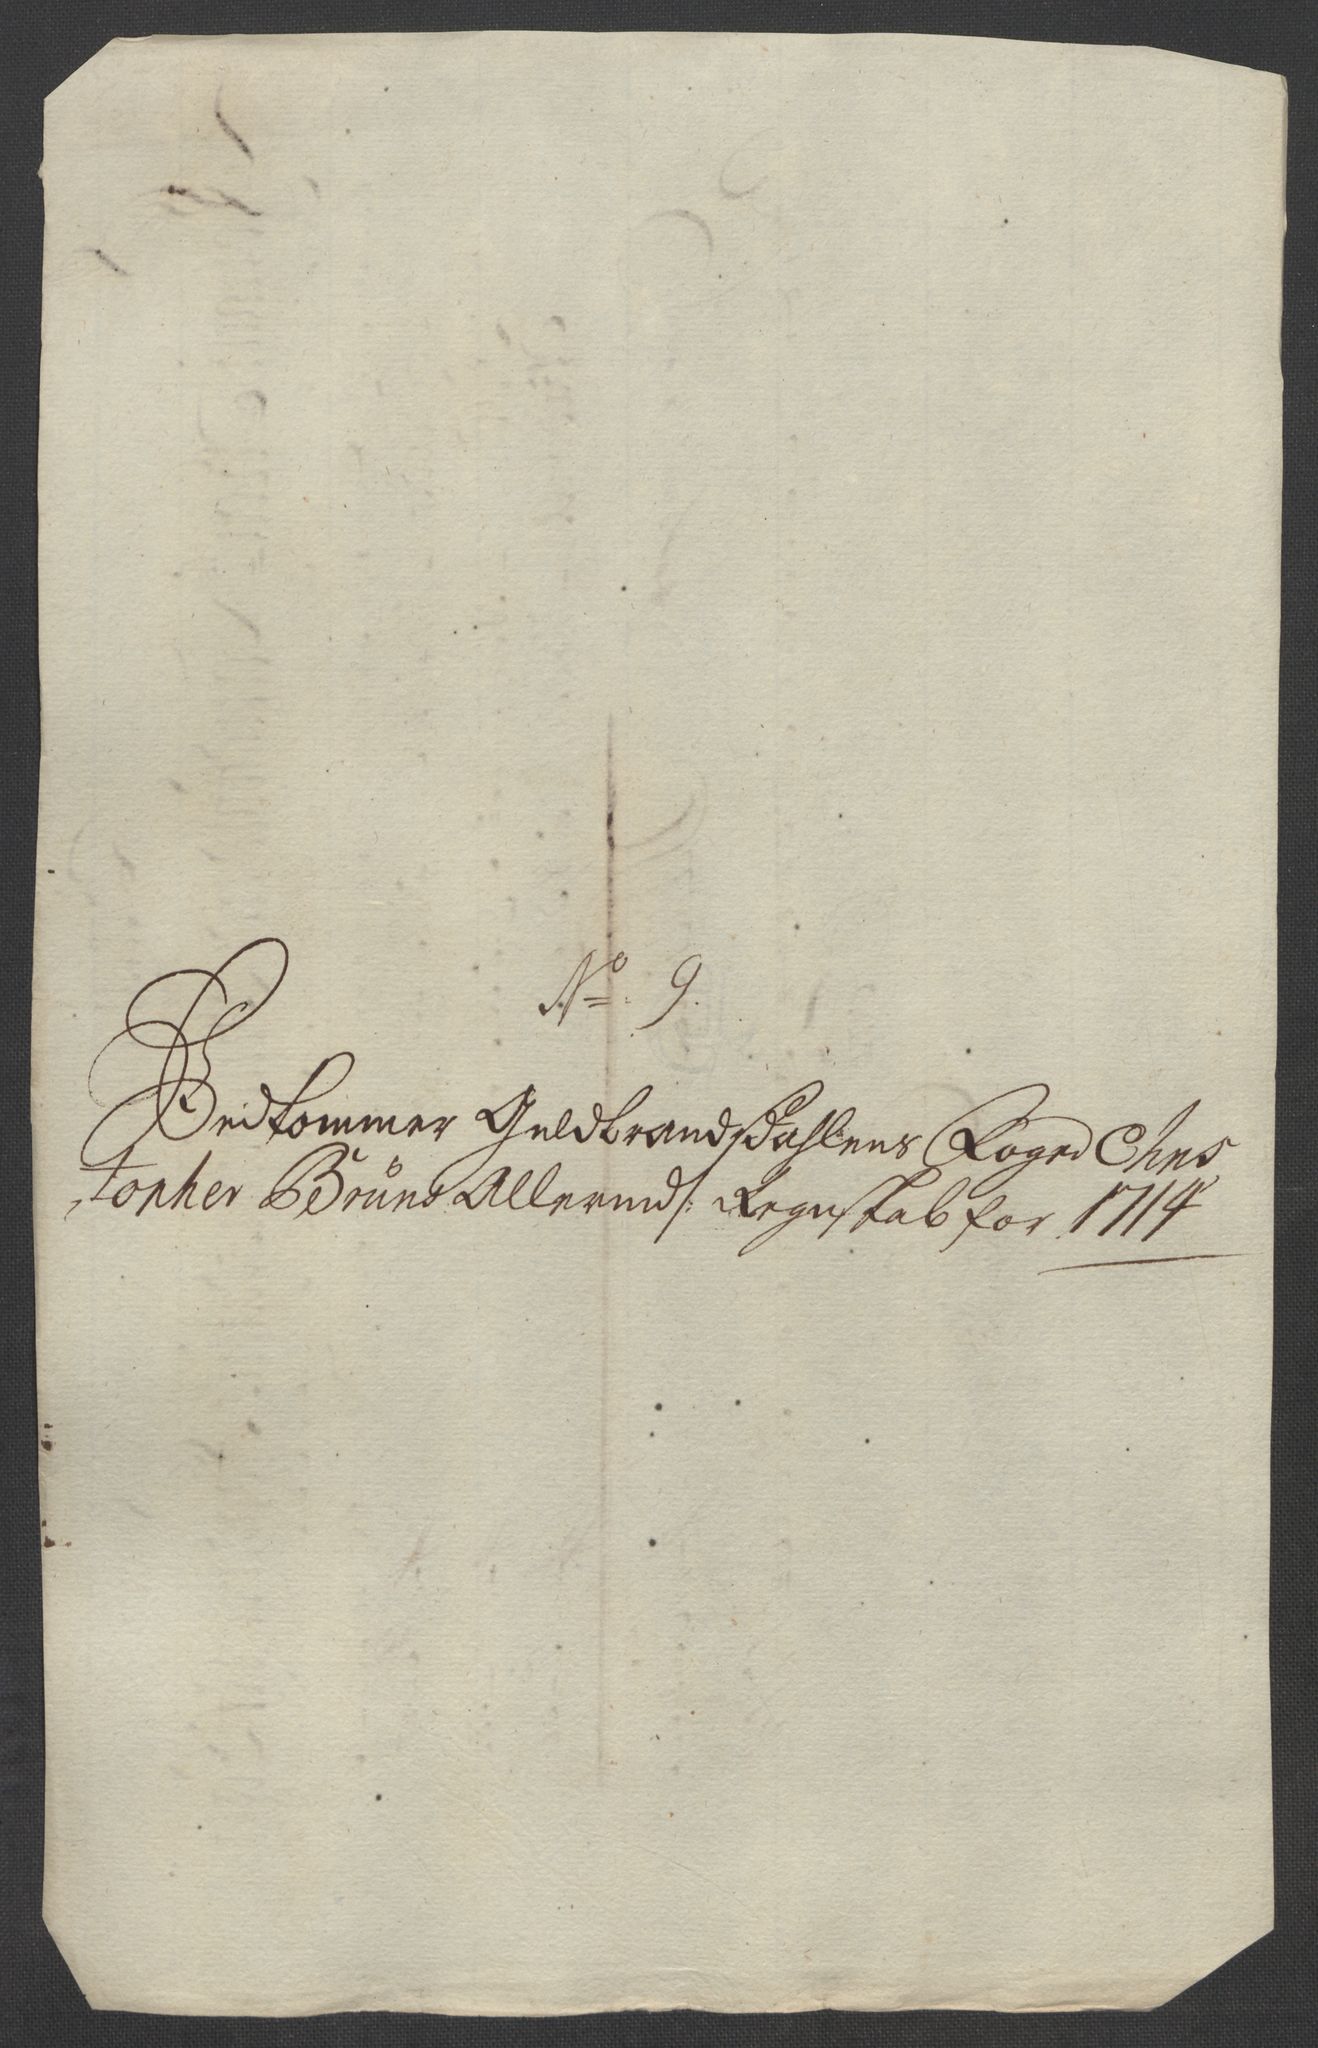 No 9.
Vedkommer Guldbrandsdahlens Foged Chris
topher Bruns Allerunds: Regnskab for 1714